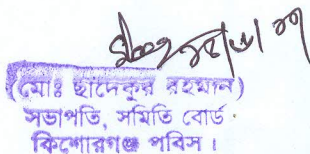 (মোঃ ছাদেকুর রহমান)
সভাপতি, সমিতি বোর্ড
কিশোরগঞ্জ পবিস।